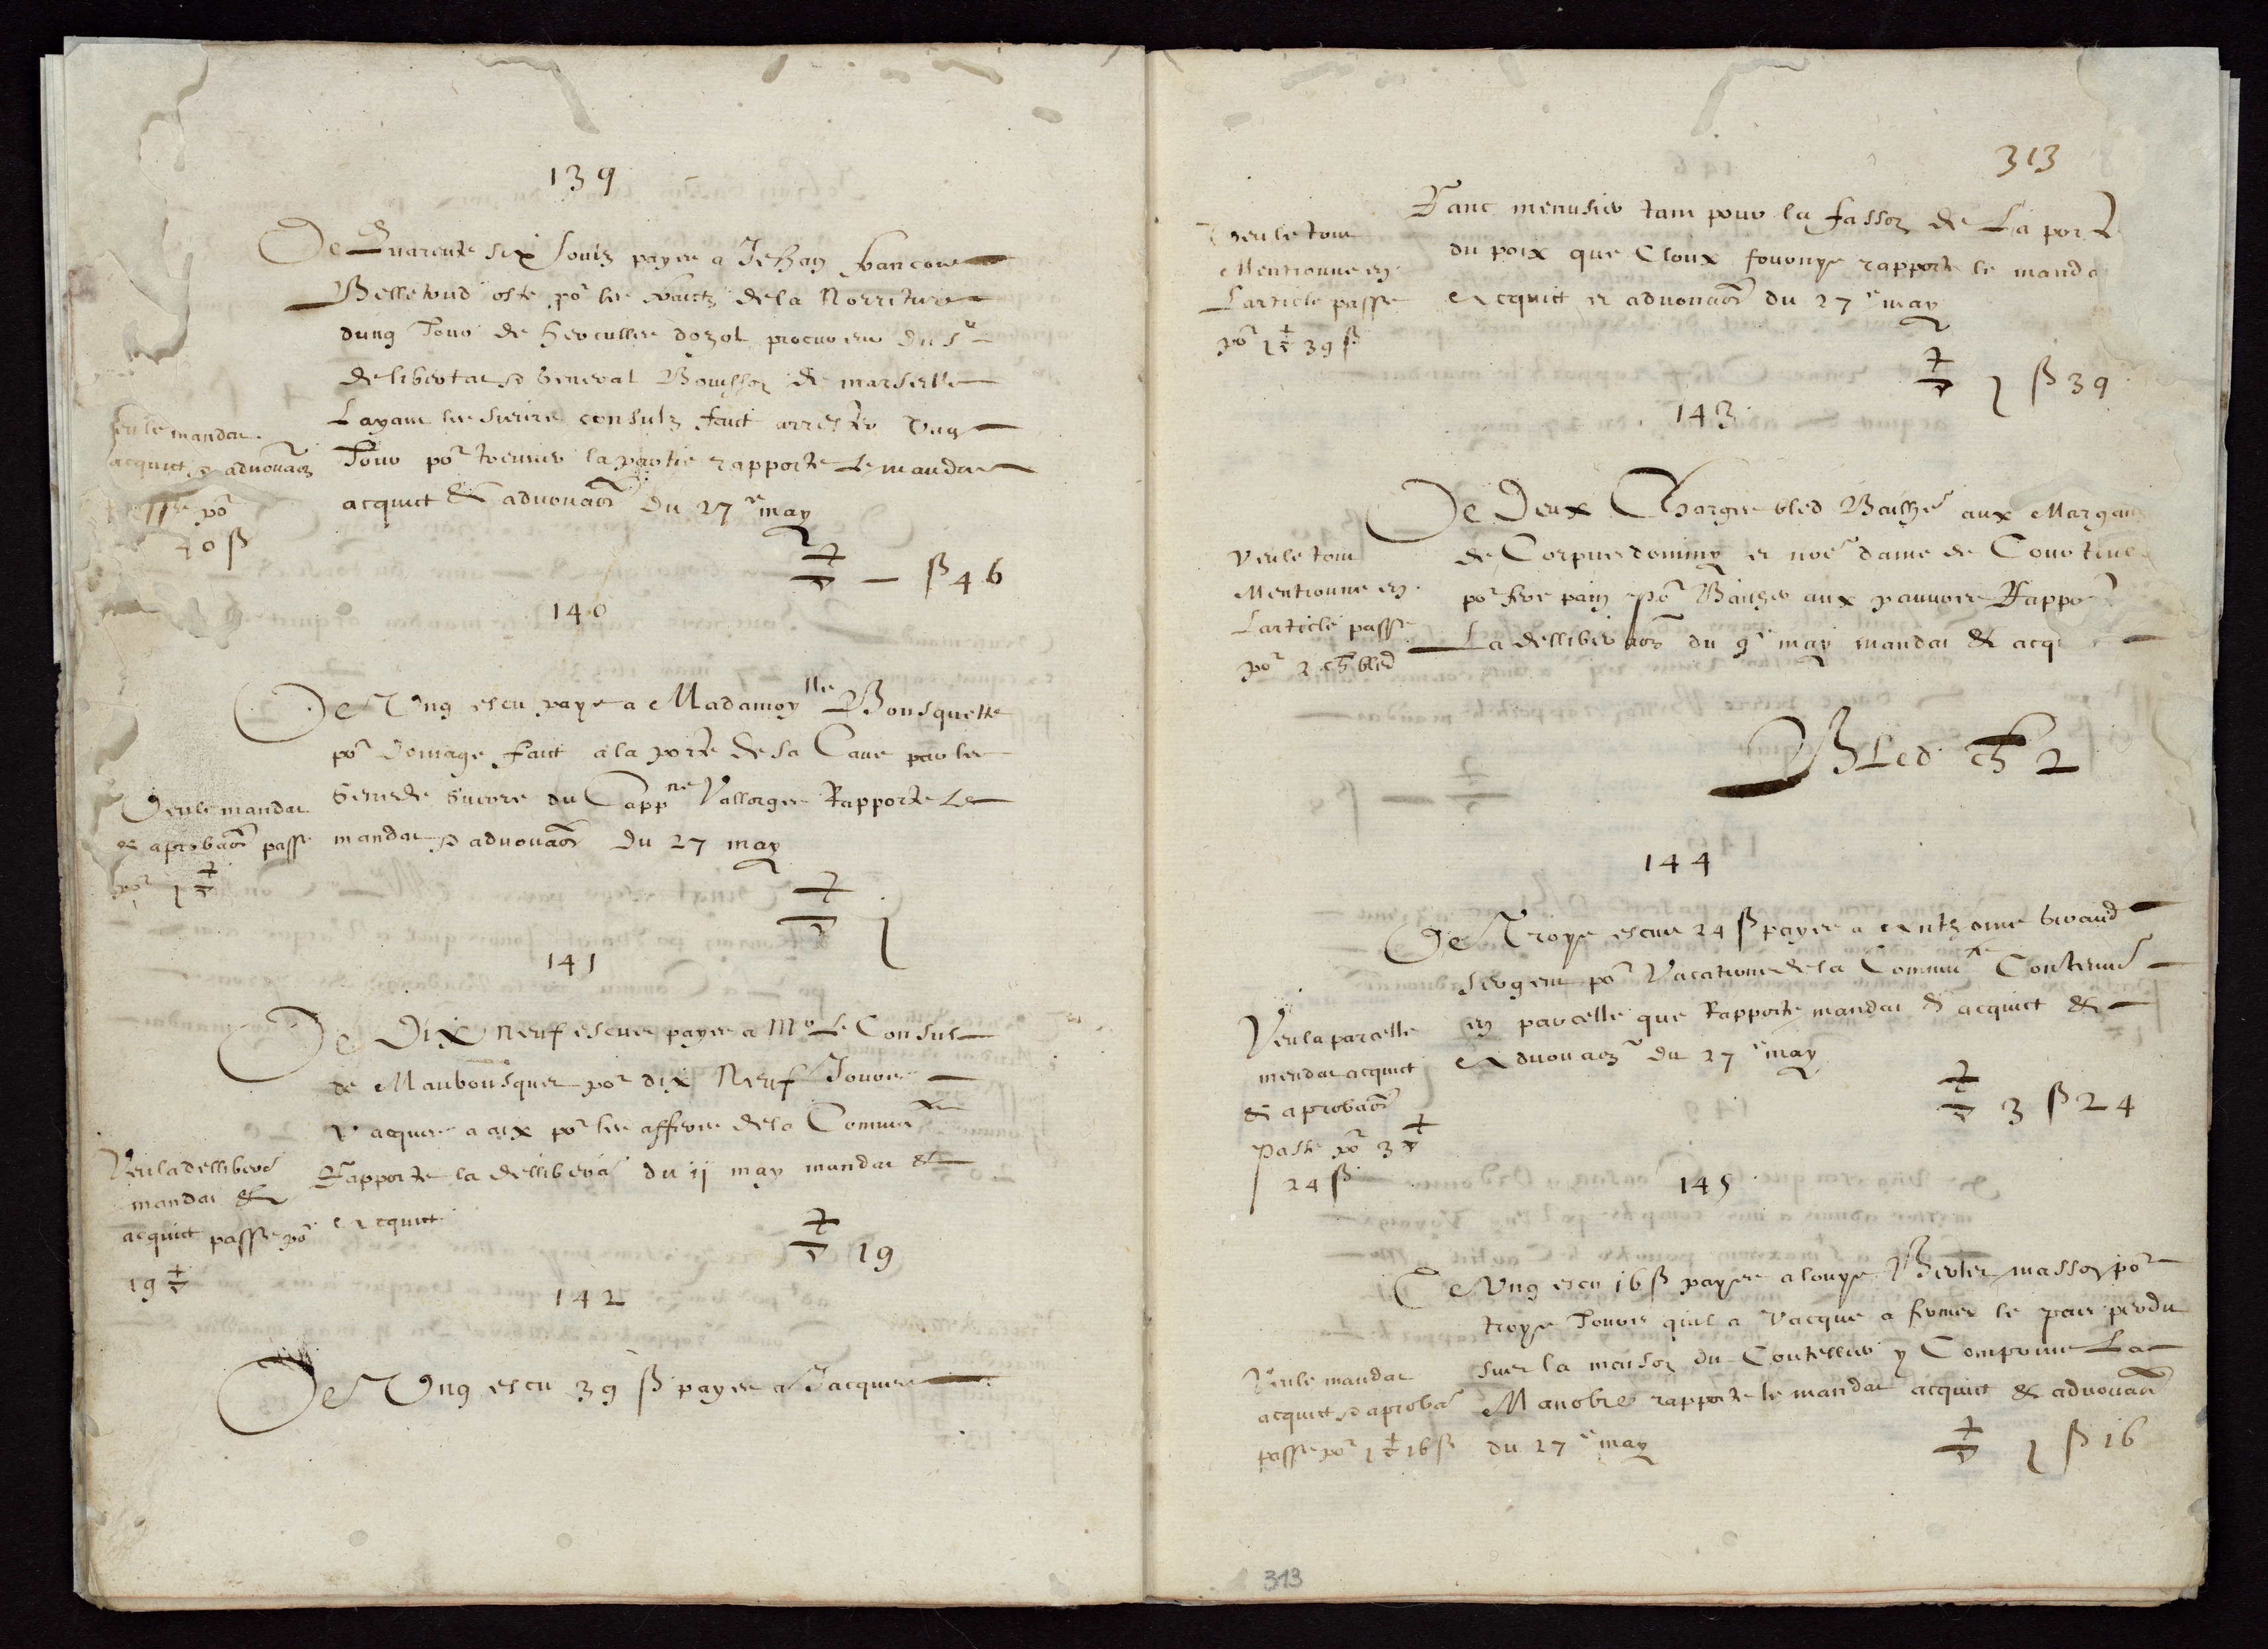 139
De Quarente six soulz payes a Jehan francoes
Belletrud oste por les de la Norriture
dung Jour de hercullee dozol procureur du Sr
de libertat & General Bouisson de marseille
Layant les sieurs consulz faict arrester ung
Jour por la partie rapporte le mandat
acquict & advouaon du 27e may
Veu le mandat
acquict & advouaon
passe por
40 ß
— ß 46
140
De Ung escu paye a Madamoylle Bousquette
por domage faict a la porte de sa Cave par les
Gens de guerre du Cappne Vallorges Rapporte Le
mandat & advouaon du 27 may
Veu le mandat
& aprobaon passe
por 1
1
141
De Dix neuf escues payes a Mr Le Consul
de Maubousquet por dix Neuf Jours
Vacques a aix por les afferes de la Commté
Rapporte la dellibera du 11 may mandat &
Acquict
Veu la dellibera
mandat &
acquict passe por
19
19
142
De Ung escu 39 ß payes a Jacques
313
Fanc menusier tant pour la fasson de La porte
du poix que Cloux fournys rapporte le manda
Acquict et advouaon du 27e may
Veu le tout
Mentionne en
Larticle passe
por 1 39 ß
1 ß 39
143
De Deux Charges bled Bailhé aux Margau
de Corpus dominy et nore dame de
por fere pain por Bailher aux pauvres Rapporte
La delliberaon du 9e may mandat & acq
Veu le tout
Mentionne en
Larticle passe
por 2 ch bled
BLed ch 2
144
De Troys escus 24 ß payes a Anthoine Giraud
sergent por Vacations de la Commté Contenus
en parcelle que Rapporte mandat & acquict &
Advouaon du 27e may
Veu la parcelle
mendat acquict
& aprobaon
Passe por 3
24 ß
3 ß 24
145
De Ung escu 16 ß payes a louys masson por
troys Jours quil a Vacque a fermer le pas perdu
sur la maison du Contellier y Comprins La
Manobre rapporte le mandat acquict & advouaon
du 27e may
Veu le mandat
acquict & aproba
passe por 1 16 ß
1 ß 16
313